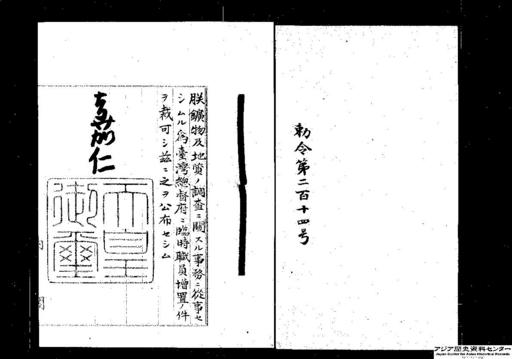 勅令第二百十四号
朕鑛物及地質ノ調査ニ關スル事務ニ從事セ
シムル爲臺灣總督府ニ臨時職員増置ノ件
ヲ裁可シ茲ニ之ヲ公布セシム
嘉仁
天皇
御璽
内
閣
アジア歴史資料センター
Japan Center for Asian Historical Records